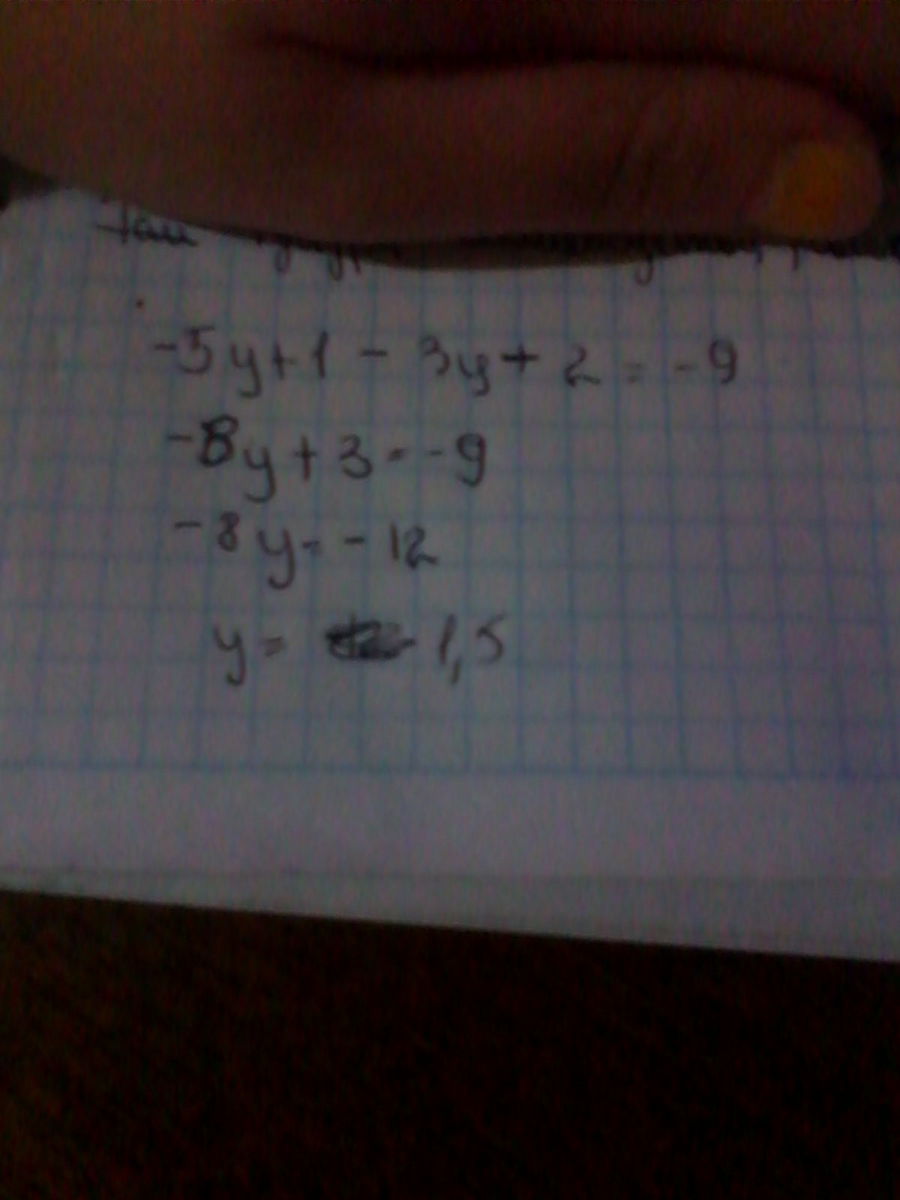 -5y+1 - 3y + 2 = -9
-8y + 3 = -9
-8y = -12
y = 1,5